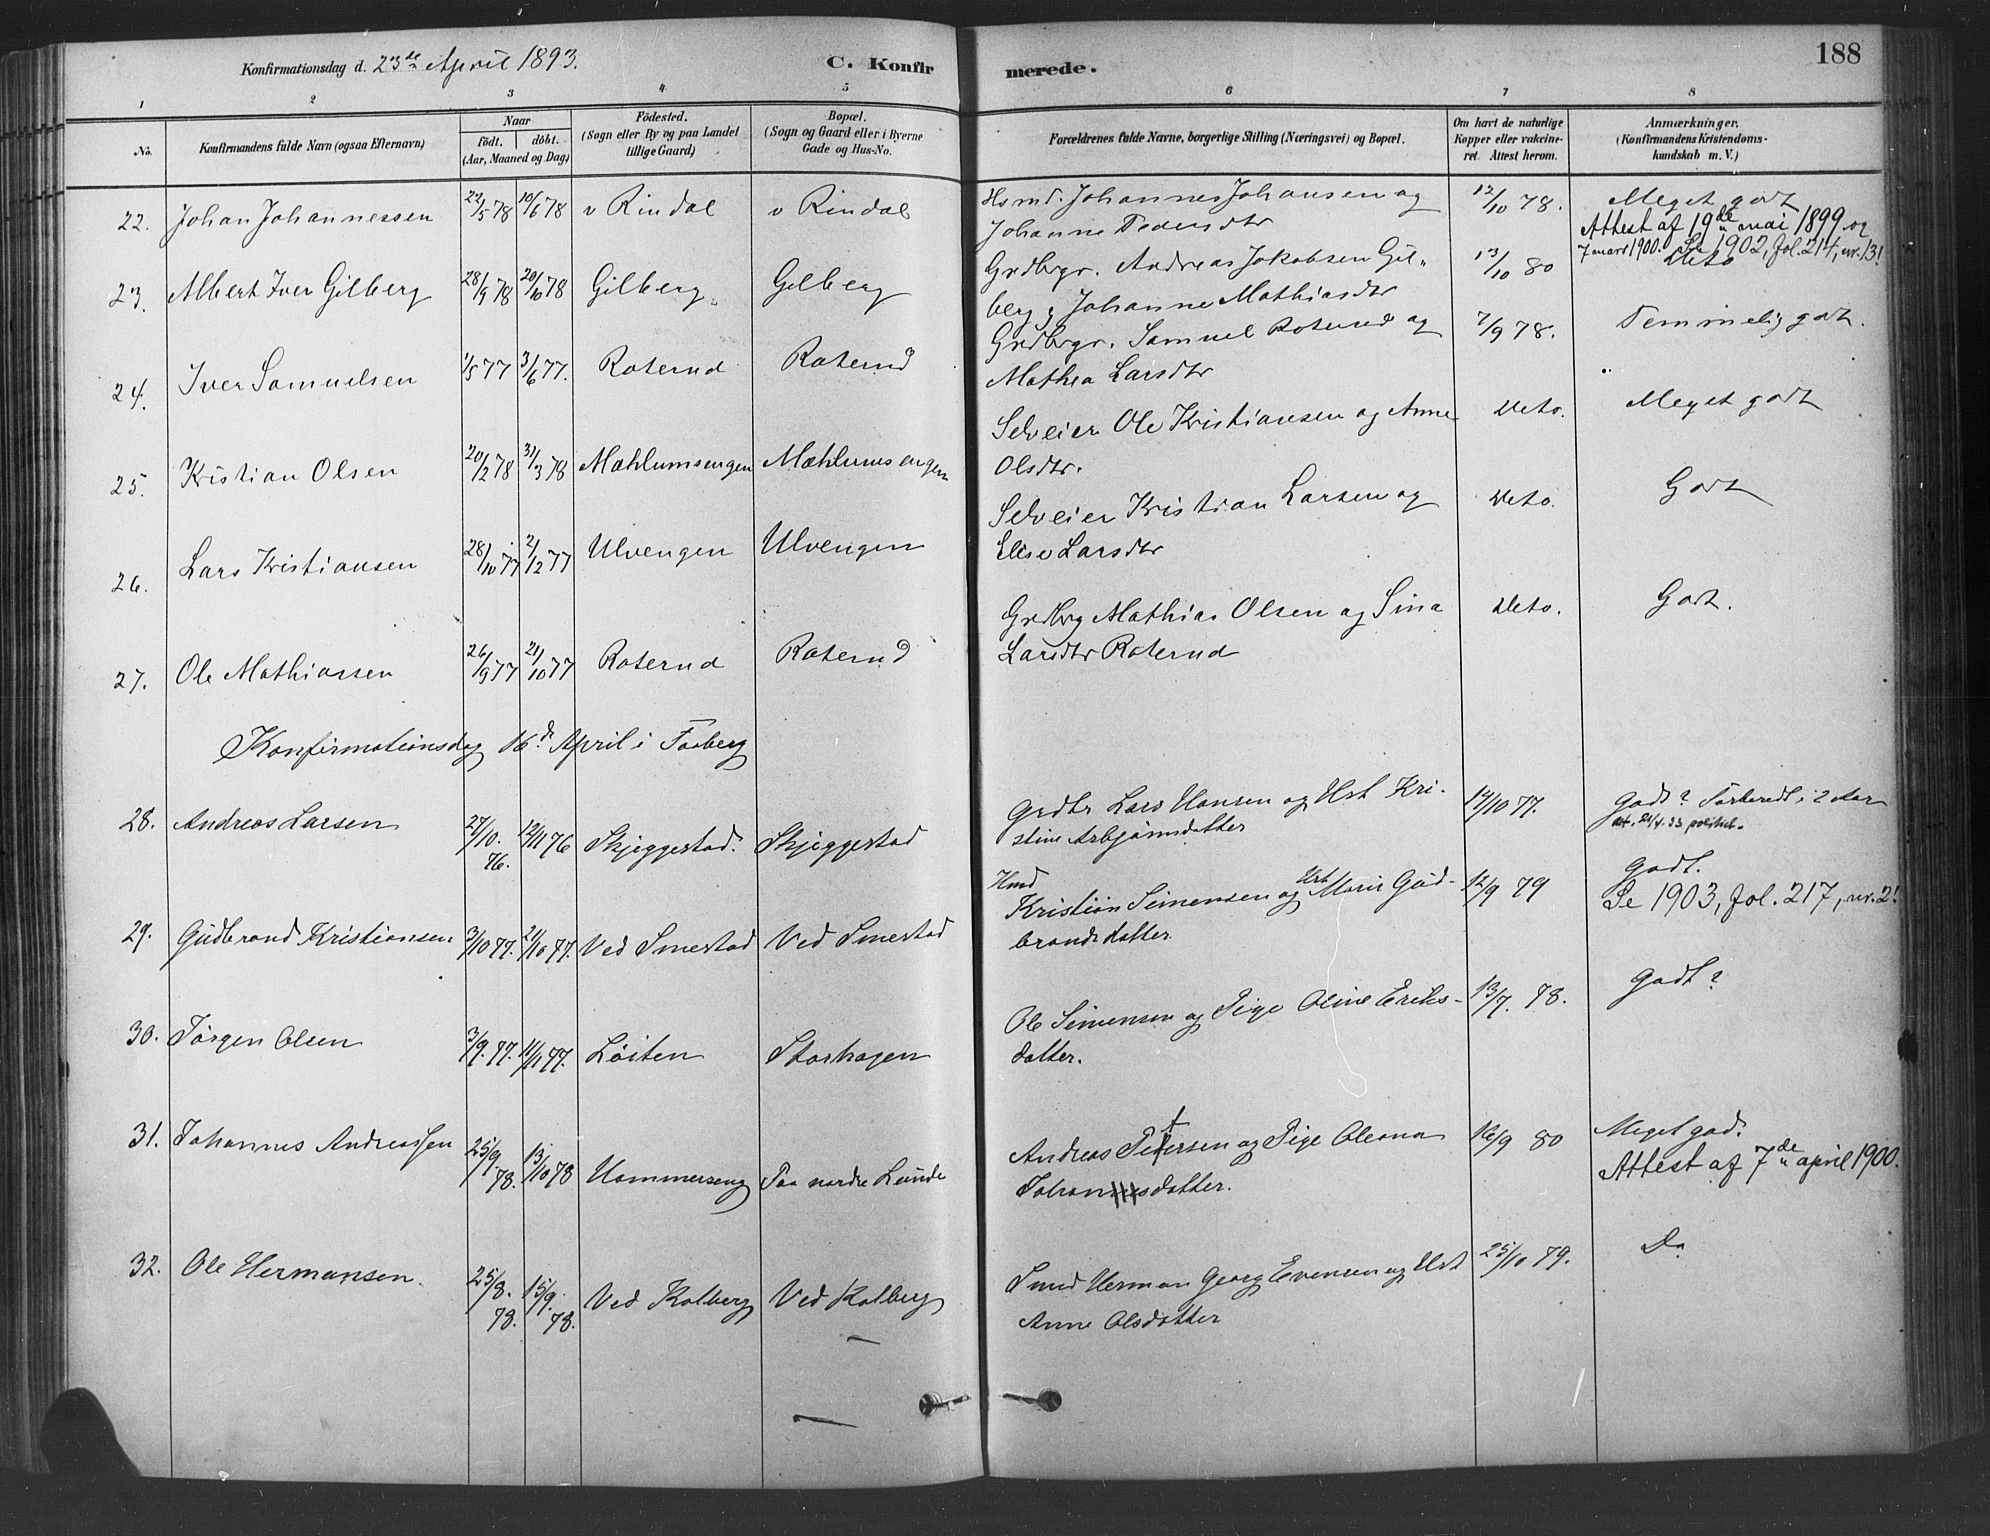 Konfirmationsdag d. 23de April 1893. C. Konfir merede. 188
1 2 3 4 5 6 7 8
No. Konfirmandens fulde Navn (ogsaa Efternavn) Naar født. døbt. (Aar, Maaned og Dag) Fødested. (Sogn eller By og paa Landet tillige Gaard.) Bopæl. (Sogn og Gaard eller i Byerne Gade og Hus-No. Forældrenes fulde Navne, borgerlige Stilling (Næringsvei) og Bopæl. Om havt de naturlige Kopper eller vakcineret. Attest herom. Anmærkninger. (Konfirmandens Kristendomskundskab m. V.)
22. Johan Johannessen 22/5 78 10/6 78 v Rindal v Rindal Hsmd. Johannes Johansen og 12/10 78. Meget godt
Johanne Pedersdtr Attest af 19de mai 1899 og
7 mars 1900. Se 1902, fol. 214, nr. 13!
23. Albert Iver Gilberg 28/9 78 20/10 78 Gilberg. Gilberg Grdbrgr. Andreas Jakobsen Gil- 13/10 80 Deto
berg og Johanne Mathiasdtr
24. Iver Samuelsen 1/5 77 3/6 77. Roterud Roterud Grdbrgr. Samuel Roterud og 7/9 78. Temmelig godt.
Mathea Larsdtr
25. Kristian Olsen 20/2 78 31/3 78 Mæhlumsengen Mæhlumsengen Selveier Ole Kristiansen og Anne Deto. Meget godt
Olsdtr.
26. Lars Kristiansen 28/10 77 2/12 77 Ulvengen Ulvengen Selveier Kristian Larsen og Deto. Godt
Elise Larsdtr
27. Ole Mathiassen 26/9 77 21/10 77 Roterud Roterud Grdbrg Mathias Olsen og Sina Deto. Godt.
Larsdtr Roterud
Konfirmationsdag 16d. April i Faaberg
28. Andreas Larsen 27/10. 76. 12/11 76 Skjeggestad. Skjeggestad Grdbr Lars Hansen og Hst Kri- 14/10 77. Godt? Forberedt i 2 Aar
stine Arbjørnsdatter att. 21/4. 33 politiet.
29. Gudbrand Kristiansen 3/10 77. 21/10 77. Ved Smestad Ved Smestad Hmd Kristian Simensen og Hst Marie Gud- 12/9 79 Godt.
brandsdatter. Se 1903, fol. 217, nr. 2!
30. Jørgen Olsen 3/9. 77. 11/11 77. Løiten Storhagen Ole Simensen og Pige Oline Eriks- 13/7. 78. Godt?
datter.
31. Johannes Andreassen 25/9 78. 13/10 78 Hammerseng Paa nordre Lunde Andreas Petersen og Pige Oleana 16/9 80 Meget god.
Johannesdatter. Attest af 7de april 1900.
32. Ole Hermansen. 25/8. 78. 15/9. 78. Ved Kolberg Ved Kolberg Smed Herman Georg Evensen og Hst 25/10 79. Do
Anne Olsdatter